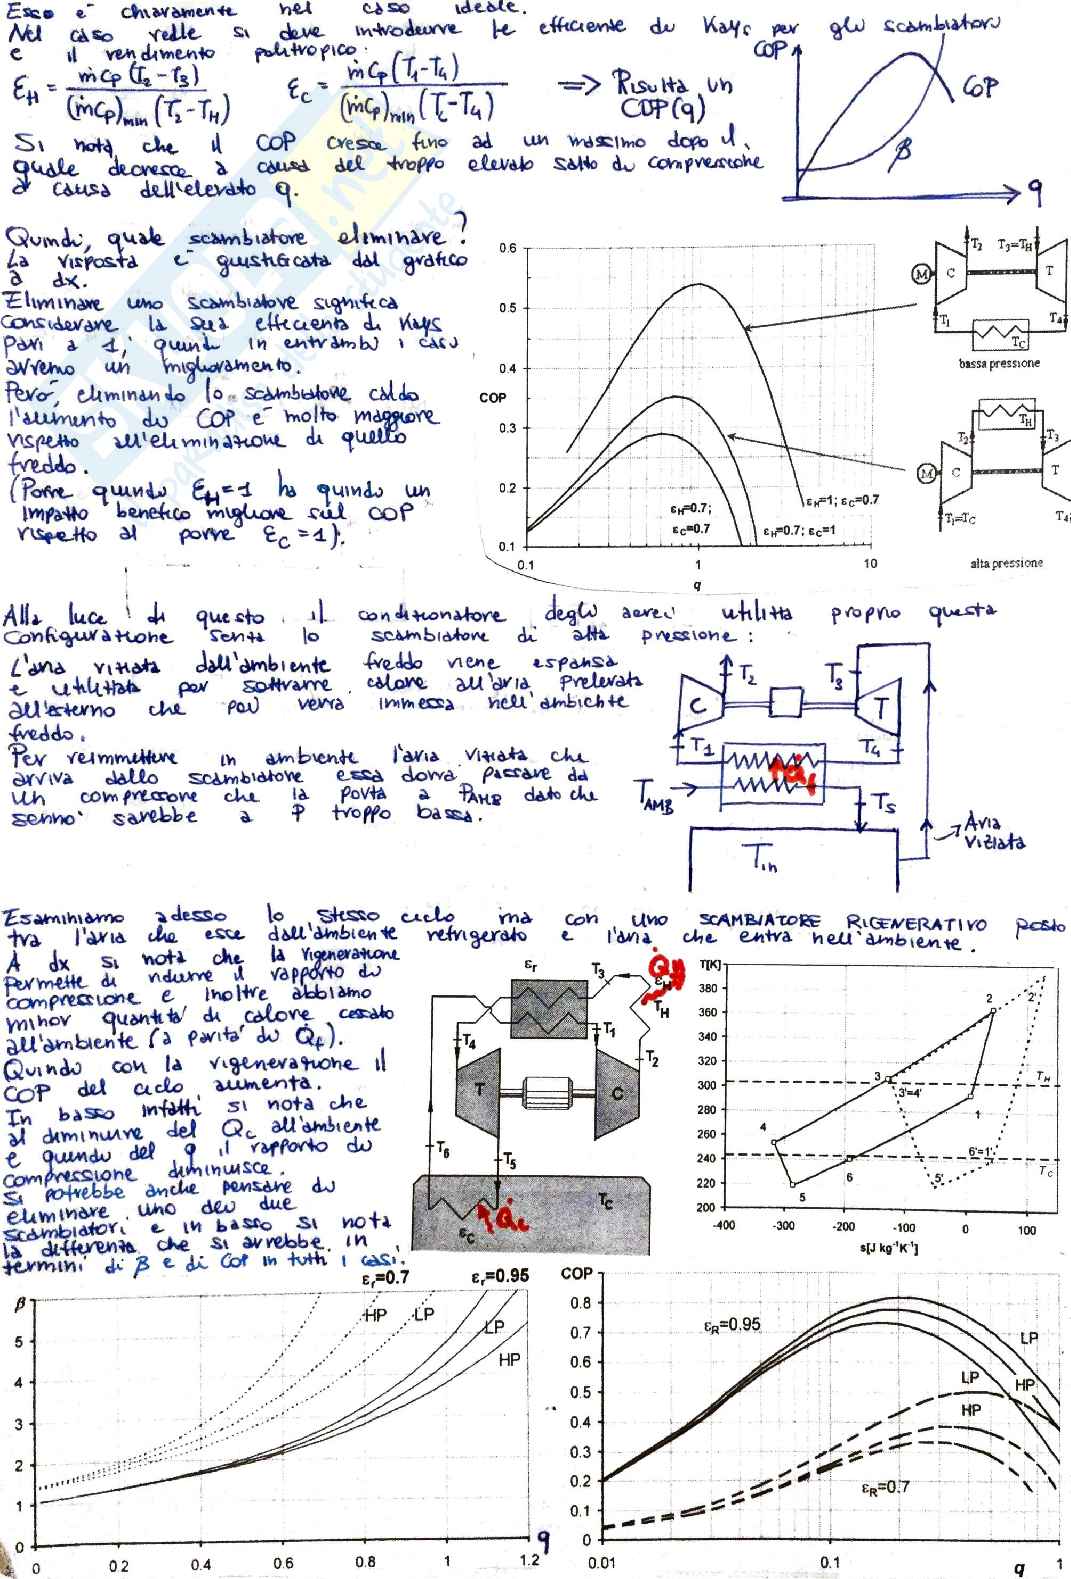 Esso è chiaramente nel caso ideale.
Nel caso reale si deve introdurre le efficienze di Kays per gli scambiatori
e il rendimento politropico:
εH = ṁCp(T2-T3) / (ṁCp)min(T2-TH)
εC = ṁCp(T1-T4) / (ṁCp)min(Tc-T4)
=> Risulta un
COP(q)
COP
COP
β
q
Si nota che il COP cresce fino ad un massimo dopo il
quale decresce a causa del troppo elevato salto di compressione
a causa dell'elevato q.
Quindi, quale scambiatore eliminare?
La risposta è giustificata dal grafico
a dx.
Eliminare uno scambiatore significa
considerare la sua efficienza di Kays
pari a 1, quindi in entrambi i casi
avremo un miglioramento.
Però, eliminando lo scambiatore caldo
l'aumento di COP è molto maggiore
rispetto all'eliminazione di quello
freddo.
(Porre quindi εH=1 ha quindi un
impatto benefico migliore sul COP
rispetto al porre εC=1).
0.6
0.5
0.4
COP
0.3
0.2
0.1
0.1
1
10
q
εH=0.7;
εC=0.7
εH=0.7; εC=1
εH=1; εC=0.7
T2
T3=TH
M
C
T
T1
T4
TC
bassa pressione
TH
T2
T3
M
C
T
T1=TC
T4
alta pressione
Alla luce di questo il condizionatore degli aerei utilizza proprio questa
configurazione senza lo scambiatore di alta pressione:
L'aria viziata dall'ambiente freddo viene espansa
e utilizzata per sottrarre calore all'aria prelevata
all'esterno che poi verrà immessa nell'ambiente
freddo.
Per reimmettere in ambiente l'aria viziata che
arriva dallo scambiatore essa dovrà passare da
un compressore che la porta a PAMB dato che
senno' sarebbe a P troppo bassa.
T2
T3
C
T
T1
T4
Q̇f
TAMB
T5
Tin
Aria
viziata
Esaminiamo adesso lo stesso ciclo ma con uno SCAMBIATORE RIGENERATIVO posto
tra l'aria che esce dall'ambiente refrigerato e l'aria che entra nell'ambiente.
A dx si nota che la rigenerazione
permette di ridurre il rapporto di
compressione e inoltre abbiamo
minor quantità di calore cessato
all'ambiente (a parità di Q̇f).
Quindi con la rigenerazione il
COP del ciclo aumenta.
In basso infatti si nota che
al diminuire del Qc all'ambiente
e quindi del q il rapporto di
compressione diminuisce.
Si potrebbe anche pensare di
eliminare uno dei due
scambiatori e in basso si nota
la differenza che si avrebbe in
termini di β e di COP in tutti i casi.
εr
T3
Q̇H
εH
TH
T4
T1
T2
T
C
T6
T5
TC
εC
Q̇c
T[K]
380
360
340
320
300
280
260
240
220
200
-400
-300
-200
-100
0
100
s[J kg-1K-1]
2
2'
3
3'=4'
TH
1
4
6'=1'
TC
5
6
5'
β
5
4
3
2
1
0
0
0.2
0.4
0.6
0.8
1
1.2
q
εr=0.7
εr=0.95
HP
LP
LP
HP
COP
0.8
0.7
0.6
0.5
0.4
0.3
0.2
0.1
0
0.01
0.1
1
q
εR=0.95
LP
LP
HP
HP
εR=0.7